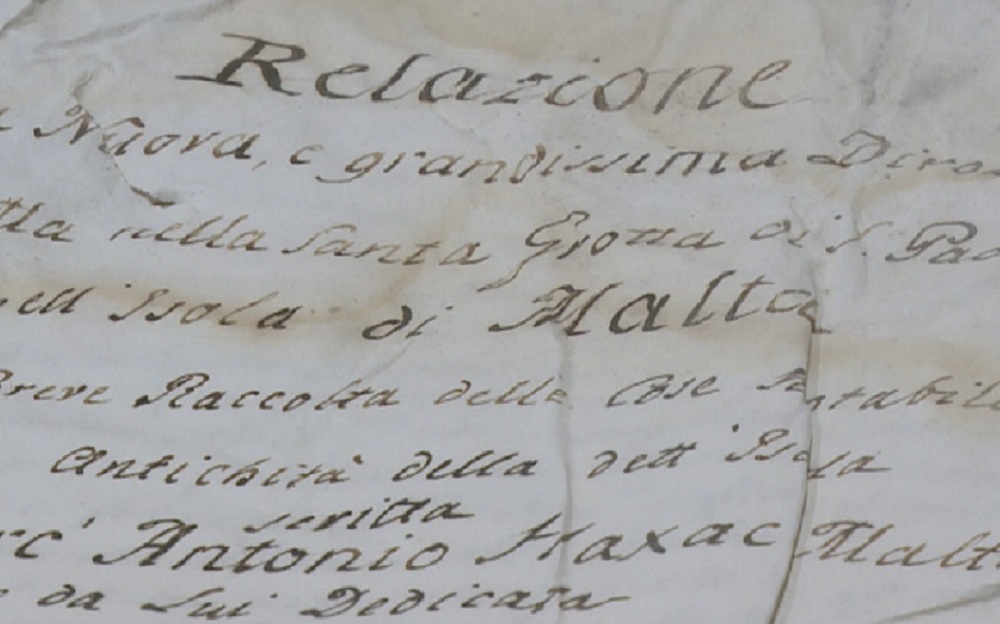 Relazione
Nuova, e grandissima Divo
tta nella Santa Grotta di S. Pao
nell'Isola di Malta
Breve Raccolta delle Cose Notabili
Antichità della dett'Isola
scritta
Antonio Haxac Malt
e da Lui Dedicata